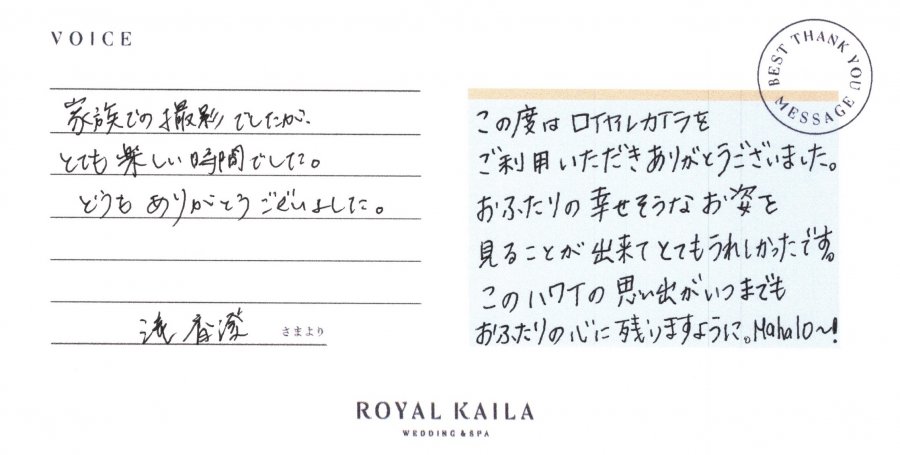 VOICE
家族での撮影でしたが、
とても楽しい時間でした。
どうもありがとうございました。
さまより
BEST THANK YOU
MESSAGE
この度はロイヤルカイラを
ご利用いただきありがとうございました。
おふたりの幸せそうなお姿を
見ることが出来てとてもうれしかったです。
このハワイの思い出がいつまでも
おふたりの心に残りますように。Mahalo〜!
ROYAL KAILA
WEDDING & SPA